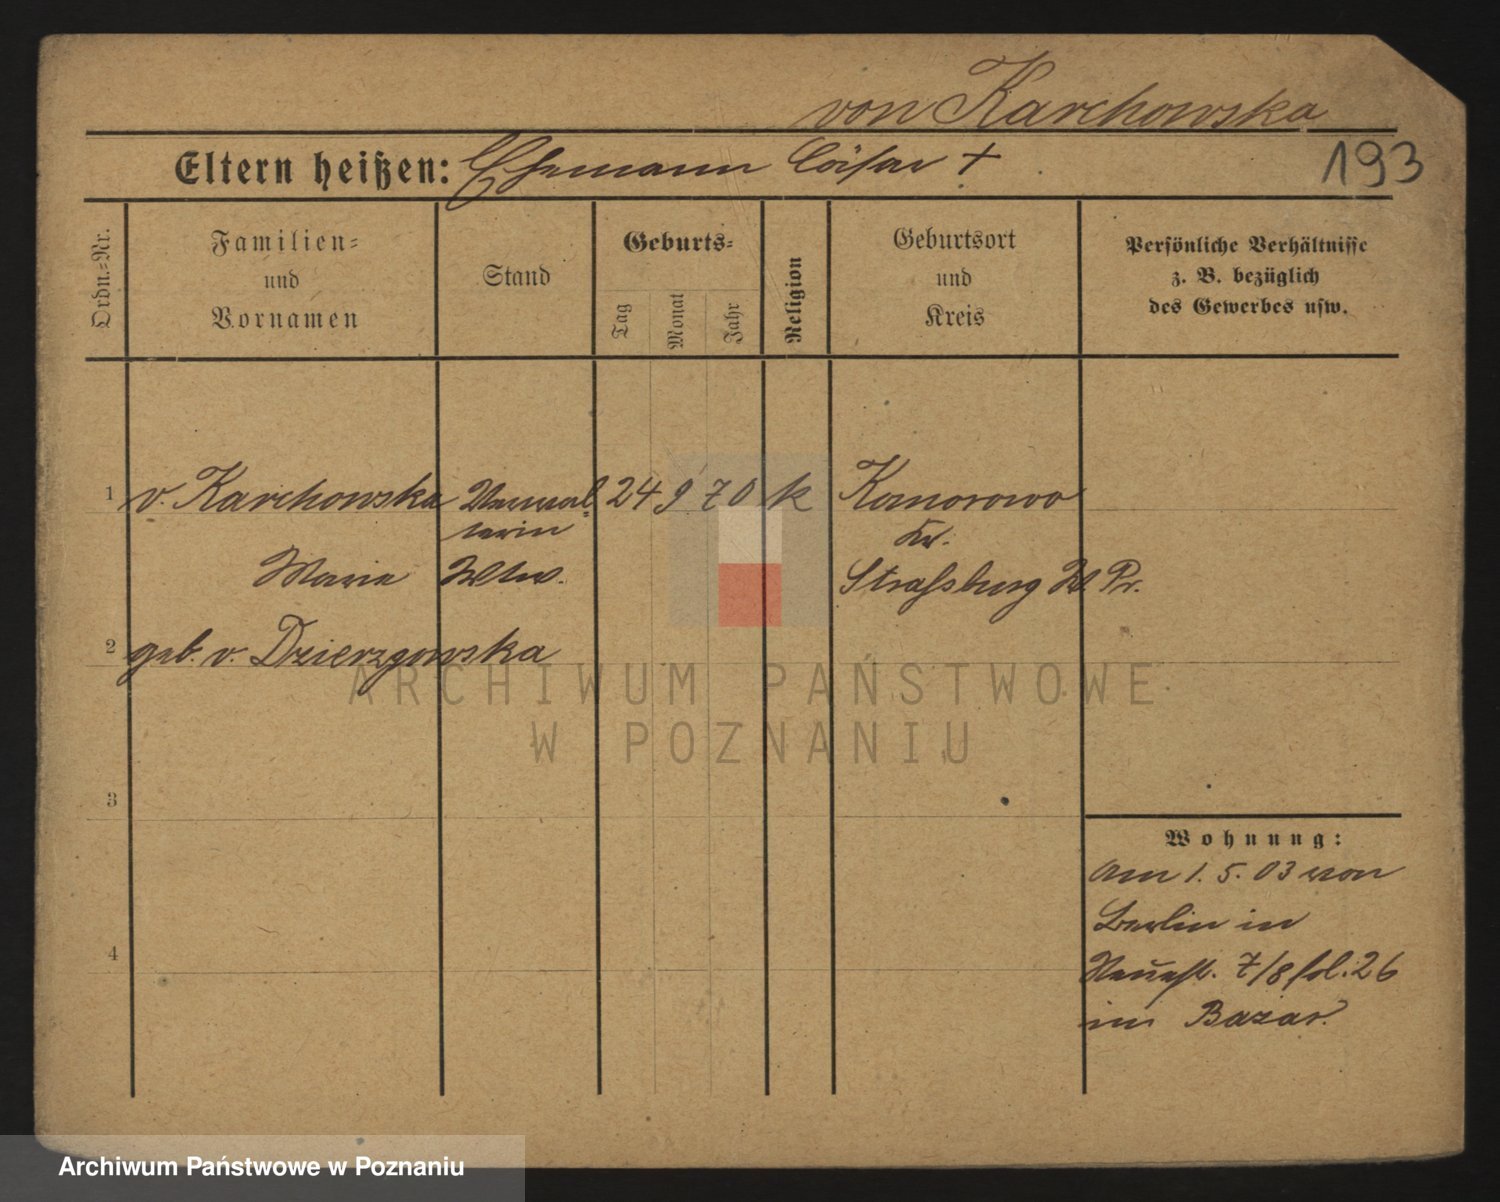 von Karchowska
Eltern heißen: Ehemann Cäsar +
193
Ordn.-Nr.
Familien-
und
Vornamen
Stand
Geburts-
Tag
Monat
Jahr
Religion
Geburtsort
und
Kreis
Persönliche Verhältnisse
z. B. bezüglich
des Gewerbes usw.
1 v. Karchowska Verwal 24 9 70 k Komorowo
terin Kr.
Marie Wtw. Strafsburg W. Pr.
2 geb. v. Dzierzgowska
ARCHIWUM PAŃSTWOWE
W POZNANIU
3
Wohnung:
am 1. 5. 03 von
Berlin in
4
Neuest. 7/8 fol. 26
im Bazar.
Archiwum Państwowe w Poznaniu